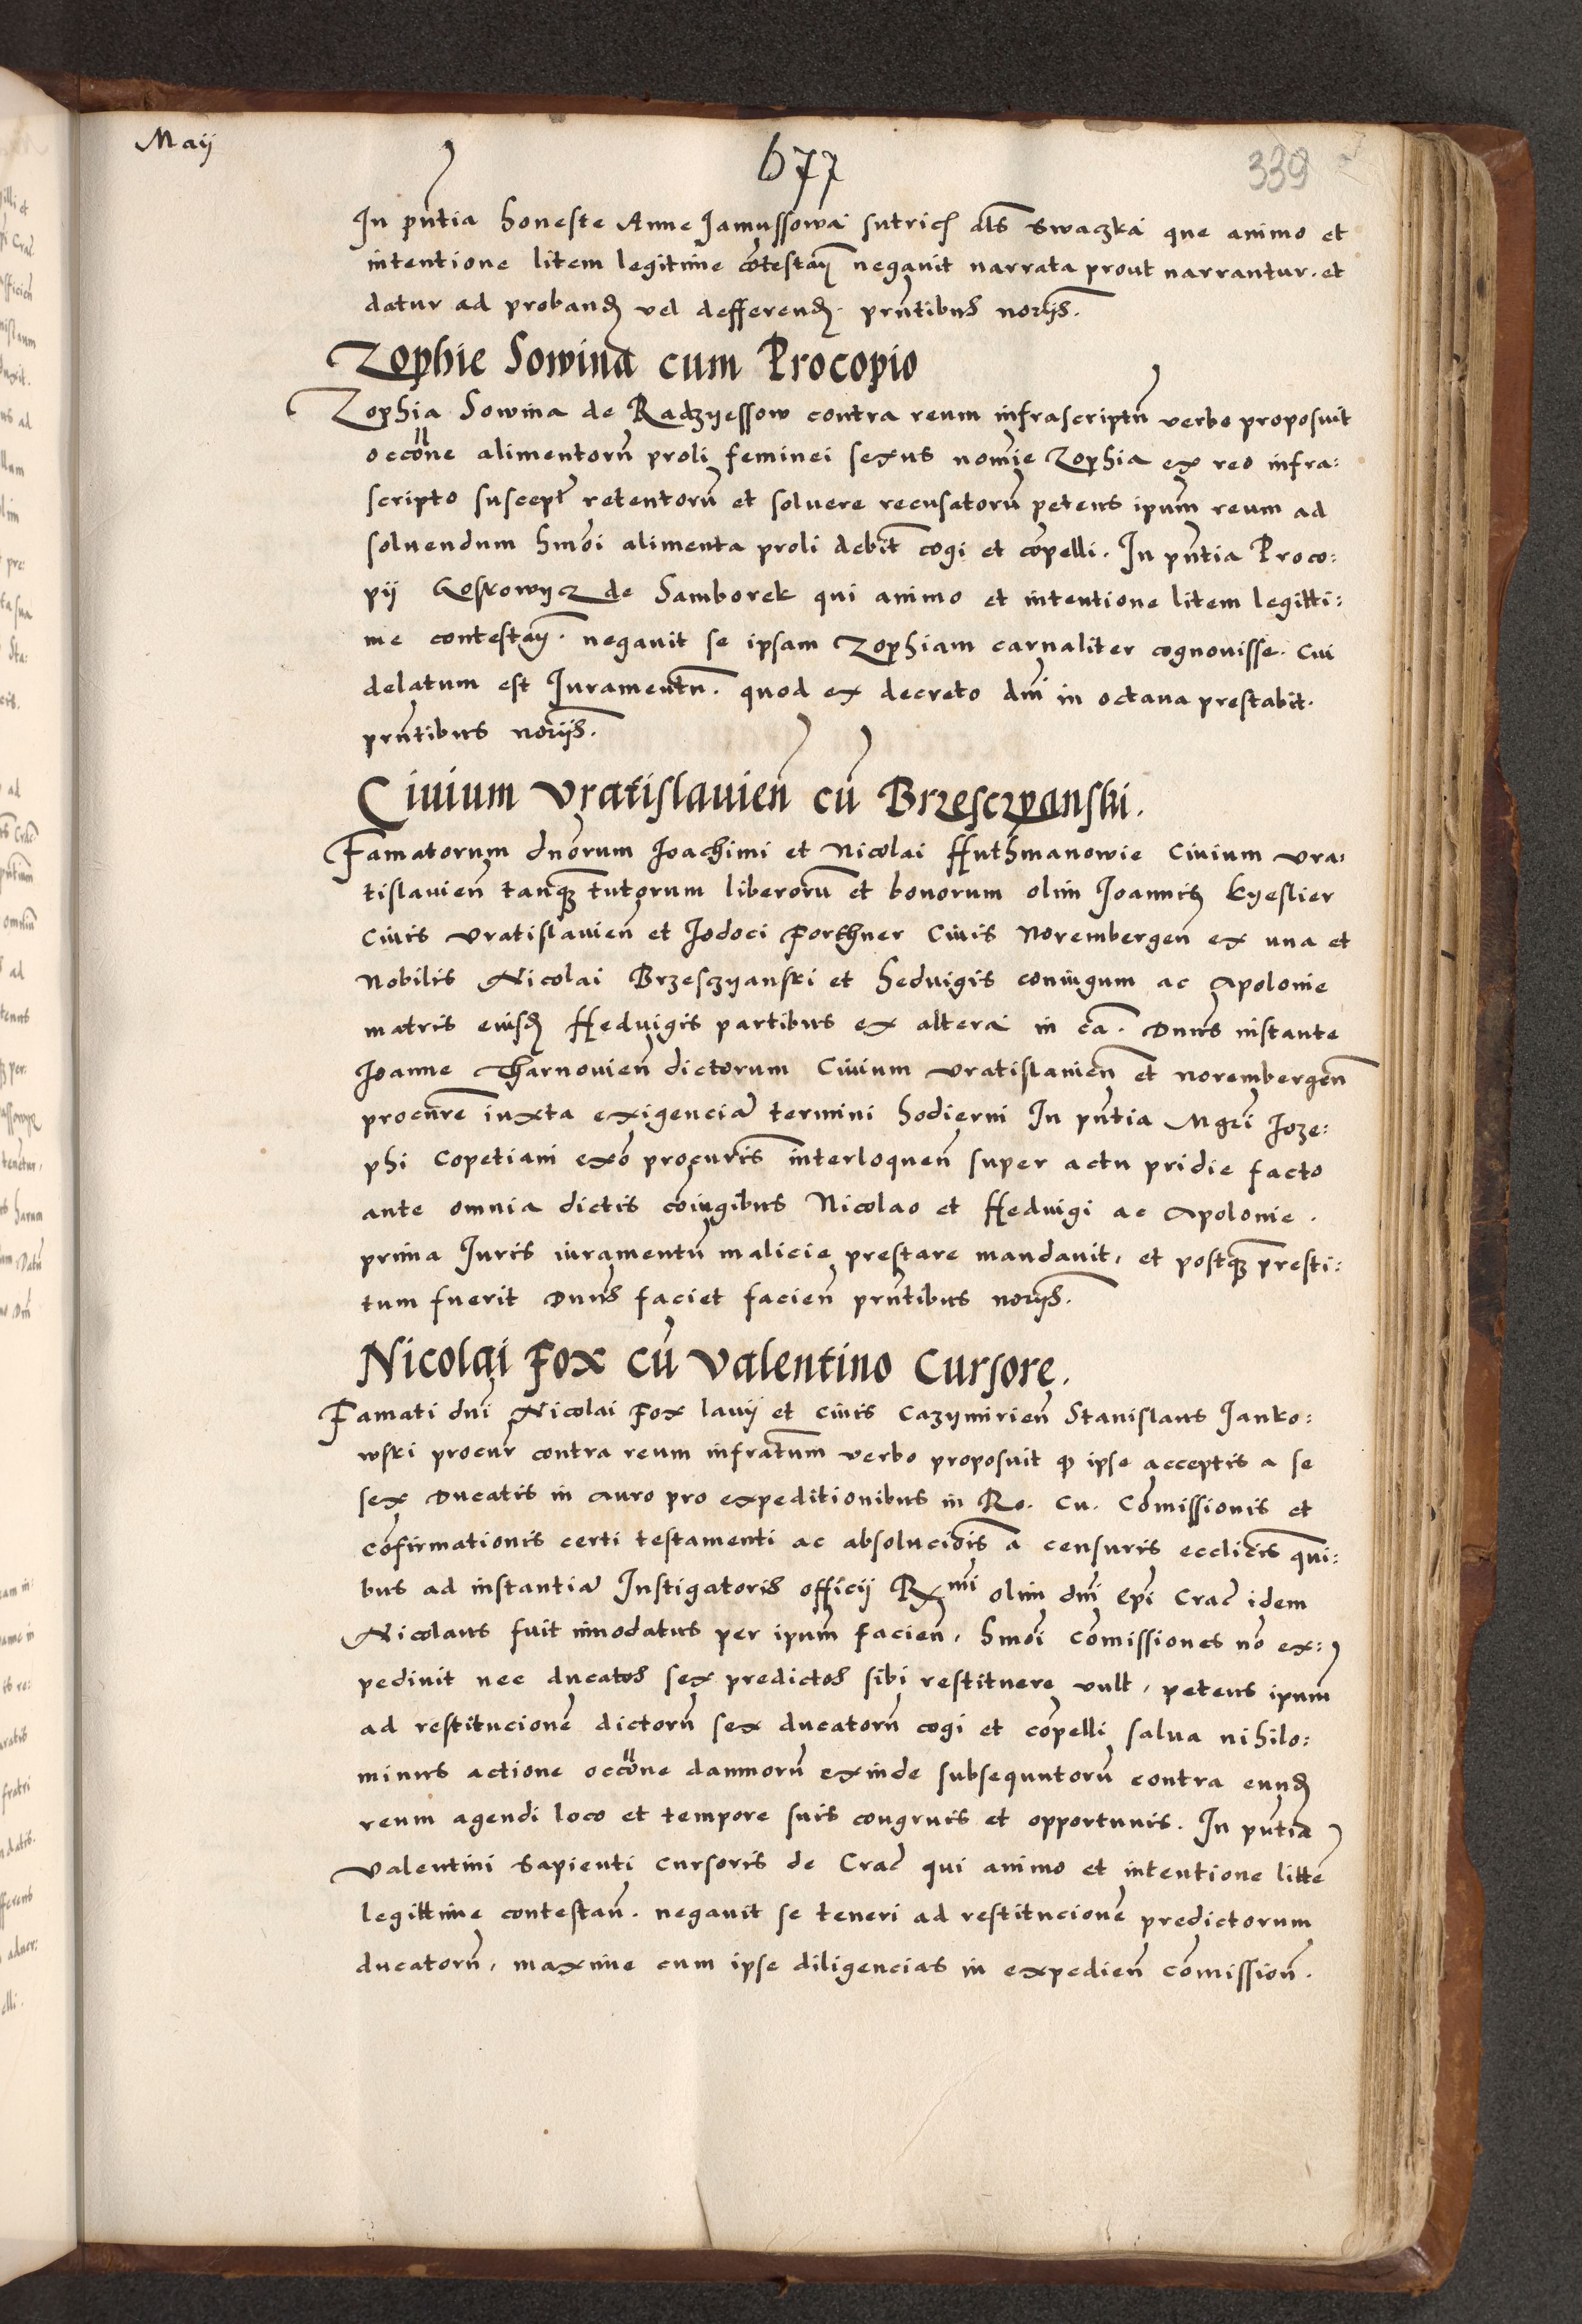 Maij
677
339
In pñtia honeste Anne Janussowa sutricʃ als Swaczka que animo et
intentione litem legitime cõtestañ negavit narrata prout narrantur. et
datur ad probanɖ vel defferenɖ. prñtibus noriis.
Zophie Sowina cum Procopio
Zophia Sowina de Radzyessow contra reum infrascriptũ verbo proposuit
occõne alimentorũ proli feminei sexus nomie Zophia ex reo infra:
scripto suscept̃ retentorũ et soluere recusatorũ petens ipum reum ad
soluendum hmõi alimenta proli debit̃ cogi et cõpelli. In pñtia Proco:
pij Koskowycz de Samborek qui animo et intentione litem legitti:
me contestañ. negauit se ipsam Zophiam carnaliter cognouisse. Cui
delatum est Juramentũ. quod ex decreto dñi in octaua prestabit.
prñtibus noriis.
Ciuium Vratislauieñ cũ Brzesczyanski.
Famatorum dñorum Joachimi et Nicolai Huthmanowie Ciuium Vra:
tislauieñ tanqȝ tutorum liberorũ et bonorum olim Joannis Kyeslier
Ciuis Vratislauieñ et Jodoci Porthner Ciuis Norembergeñ ex una et
Nobilis Nicolai Brzesczyanski et Heduigis coniugum ac Apolonie
matris eiusɖ Heduigis partibus ex altera in cã. Dnus instante
Joanne Tharnouieñ dictorum Ciuium Vratislauieñ et Norembergeñ
procure iuxta exigenciã termini hodierni In pñtia Mgri Joze:
phi Copetiani exõ procuris interloqueñ super actu pridie facto
ante omnia dictis coiugibus Nicolao et Heduigi ac Apolonie.
prima Juris iuramentũ malicie prestare mandauit, et postqȝ presti:
tum fuerit Dnus faciet facieñ prñtibus noriis.
Nicolai Fox cũ Valentino Cursore.
Famati dñi Nicolai Fox lanij et ciuis Cazymirieñ Stanislaus Janko:
wski procur̃ contra reum infratum verbo proposuit ꝙ ipse acceptis a se
sex Ducatis in auro pro expeditionibus in Ro. Cu. Cõmissionis et
cõfirmationis certi testamenti ac absolucidis a censuris ecclicis qui:
bus ad instantiã Instigatoris officij Rmi olim dñi Epi Crac̃ idem
Nicolaus fuit innodatus per ipum facieñ, hmõi Cõmissiones nõ ex:
pediuit nec ducatos sex predictos sibi restituere vult, petens ipum
ad restitucionẽ dictorũ sex ducatorũ cogi et cõpelli salua nihilo:
minus actione occõne damnorũ exinde subsequutorũ contra eunɖ
reum agendi loco et tempore suis congruis et opportunis. In pñtia
Valentini Sapienti cursoris de Crac̃ qui animo et intentione littẽ
legittime contestañ. negauit se teneri ad restitucionẽ predictorum
ducatorũ, maxime cum ipse diligencias in expedieñ cõmissioñ.